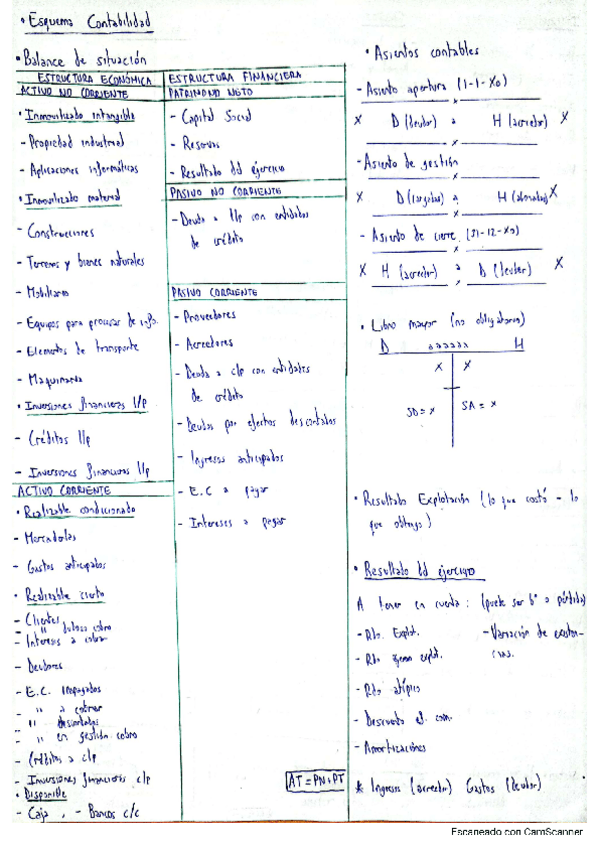 • Esquema Contabilidad
• Balance de situación
ESTRUCTURA ECONÓMICA
ACTIVO NO CORRIENTE
• Inmovilizado intangible
- Propiedad industrial
- Aplicaciones informáticas
• Inmovilizado material
- Construcciones
- Terrenos y bienes naturales
- Mobiliario
- Equipos para procesar de info.
- Elementos de transporte
- Maquinaria
• Inversiones financieras l/p
- Créditos l/p
- Inversiones financieras l/p
ACTIVO CORRIENTE
• Realizable condicionado
- Mercaderías
- Gastos anticipados
• Realizable cierto
- Clientes
- " dudoso cobro
- Intereses a cobrar
- Deudores
- E.C. impagados
- " a cobrar
- " descontados
- " en gestión cobro
- Créditos a c/p
- Inversiones financieras c/p
• Disponible
- Caja, - Bancos c/c
ESTRUCTURA FINANCIERA
PATRIMONIO NETO
- Capital Social
- Reservas
- Resultado del ejercicio
PASIVO NO CORRIENTE
- Deuda a l/p con entidades
de crédito
PASIVO CORRIENTE
- Proveedores
- Acreedores
- Deuda a c/p con entidades
de crédito
- Deudas por efectos descontados
- Ingresos anticipados
- E.C a pagar
- Intereses a pagar
AT = PN + PT
• Asientos contables
- Asiento apertura (1-1-X0)
x
X D (deudor) a H (acreedor) X
x
- Asiento de gestión
x
X D (cargados) a H (abonados) X
x
- Asiento de cierre (31-12-X0)
x
X H (acreedor) a D (deudor) X
x
• Libro mayor (no obligatorio)
D xxxxxx H
x x
SD = x SA = x
• Resultado Explotación (lo que costó - lo
que obtengo)
• Resultado del ejercicio
A tener en cuenta: (puede ser bº o pérdida)
- Rdo. Explot.
- Variación de existen-
cias.
- Rdo ajeno explot.
- Rdo atípico
- Descuento
- Amortizaciones
* Ingresos (acreedor) Gastos (deudor)
Escaneado con CamScanner